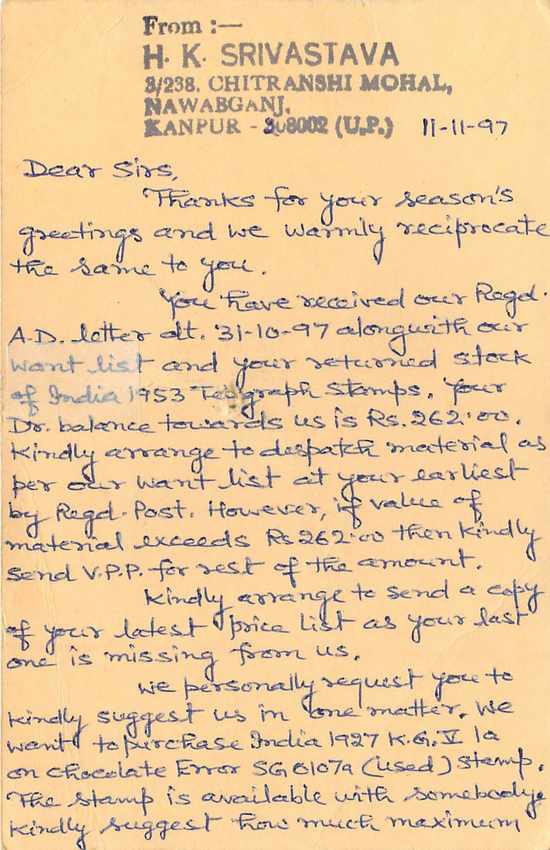 From :—
H. K. SRIVASTAVA
3/238, CHITRANSHI MOHAL,
NAWABGANJ,
KANPUR - 208002 (U.P.) 11-11-97
Dear Sirs,
Thanks for your season's
greetings and we warmly reciprocate
the same to you.
You have received our Regd.
A.D. letter dt. 31-10-97 alongwith our
want list and your returned stock
of India 1953 Telegraph Stamps. Your
Dr. balance towards us is Rs. 262.00.
Kindly arrange to despatch material as
per our want list at your earliest
by Regd. Post. However, if value of
material exceeds Rs 262.00 then kindly
send V.P.P. for rest of the amount.
Kindly arrange to send a copy
of your latest price list as your last
one is missing from us.
We personally request you to
kindly suggest us in one matter. We
want to purchase India 1927 K.G.V 1a
on chocolate Error SG 0107a (used) stamp.
The stamp is available with somebody.
Kindly suggest how much maximum